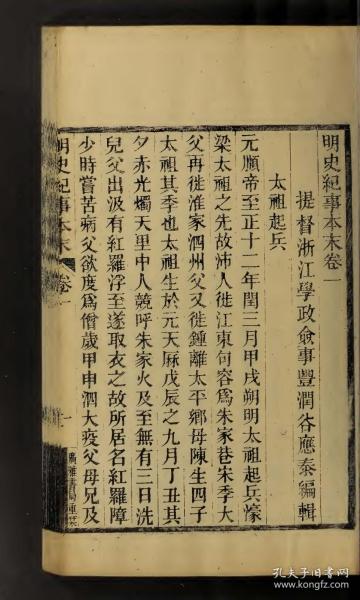 明史紀事本末卷一
提督浙江學政僉事豐潤谷應泰編輯
太祖起兵
元順帝至正十二年閏三月甲戌朔明太祖起兵濠
梁太祖之先故沛人徙江東句容爲朱家巷宋季大
父再徙淮家泗州父又徙鍾離太平鄉母陳生四子
太祖其季也太祖生於元天厤戊辰之九月丁丑其
夕赤光燭天里中人競呼朱家火及至無有三日洗
兒父出汲有紅羅浮至遂取衣之故所居名紅羅障
少時嘗苦病父欲度爲僧歲甲申泗大疫父母兄及
明史紀事本末
卷一
一
廣雅書局重栞
孔夫子旧书网
www.kongfz.com